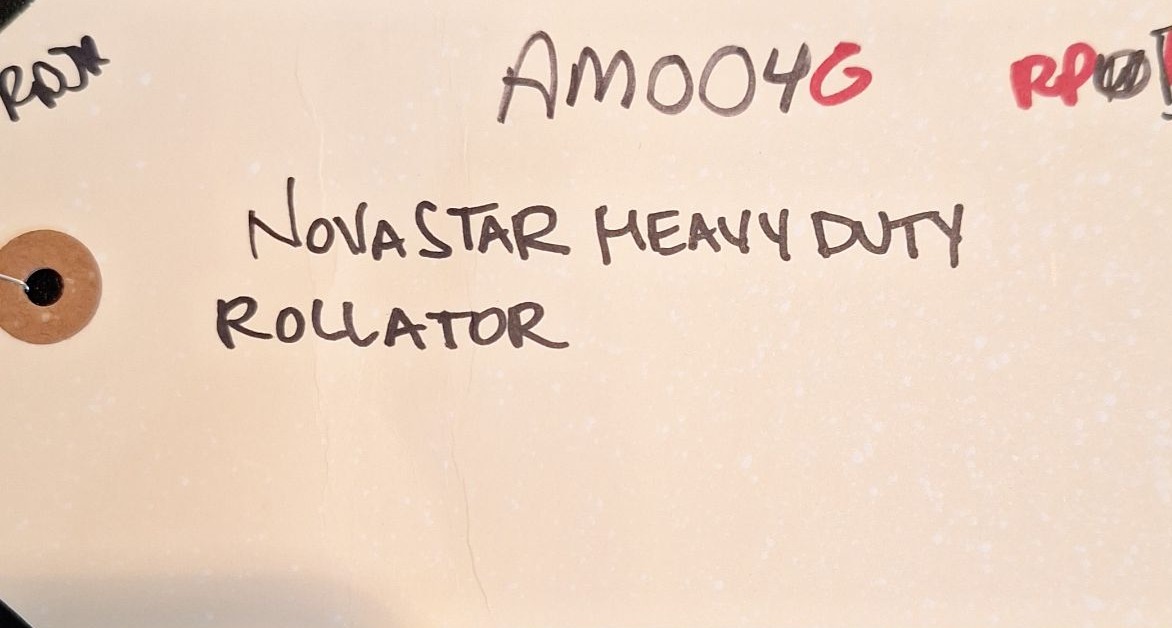 AM004G
NOVASTAR HEAVY DUTY
ROLLATOR